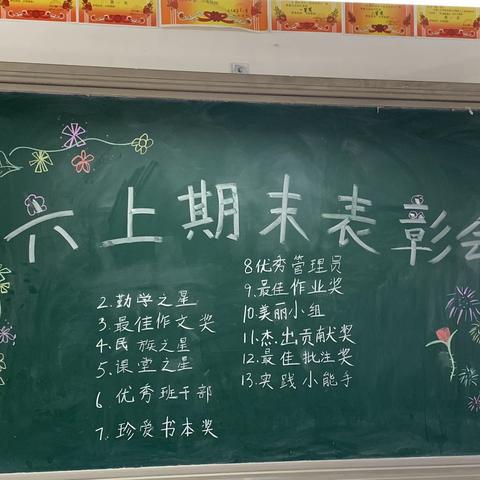 六上期末表彰会
2.勤学之星
3.最佳作文奖
4.民族之星
5.课堂之星
6.优秀班干部
7.珍爱书本奖
8优秀管理员
9.最佳作业奖
10.美丽小组
11.杰出贡献奖
12.最佳批注奖
13.实践小能手